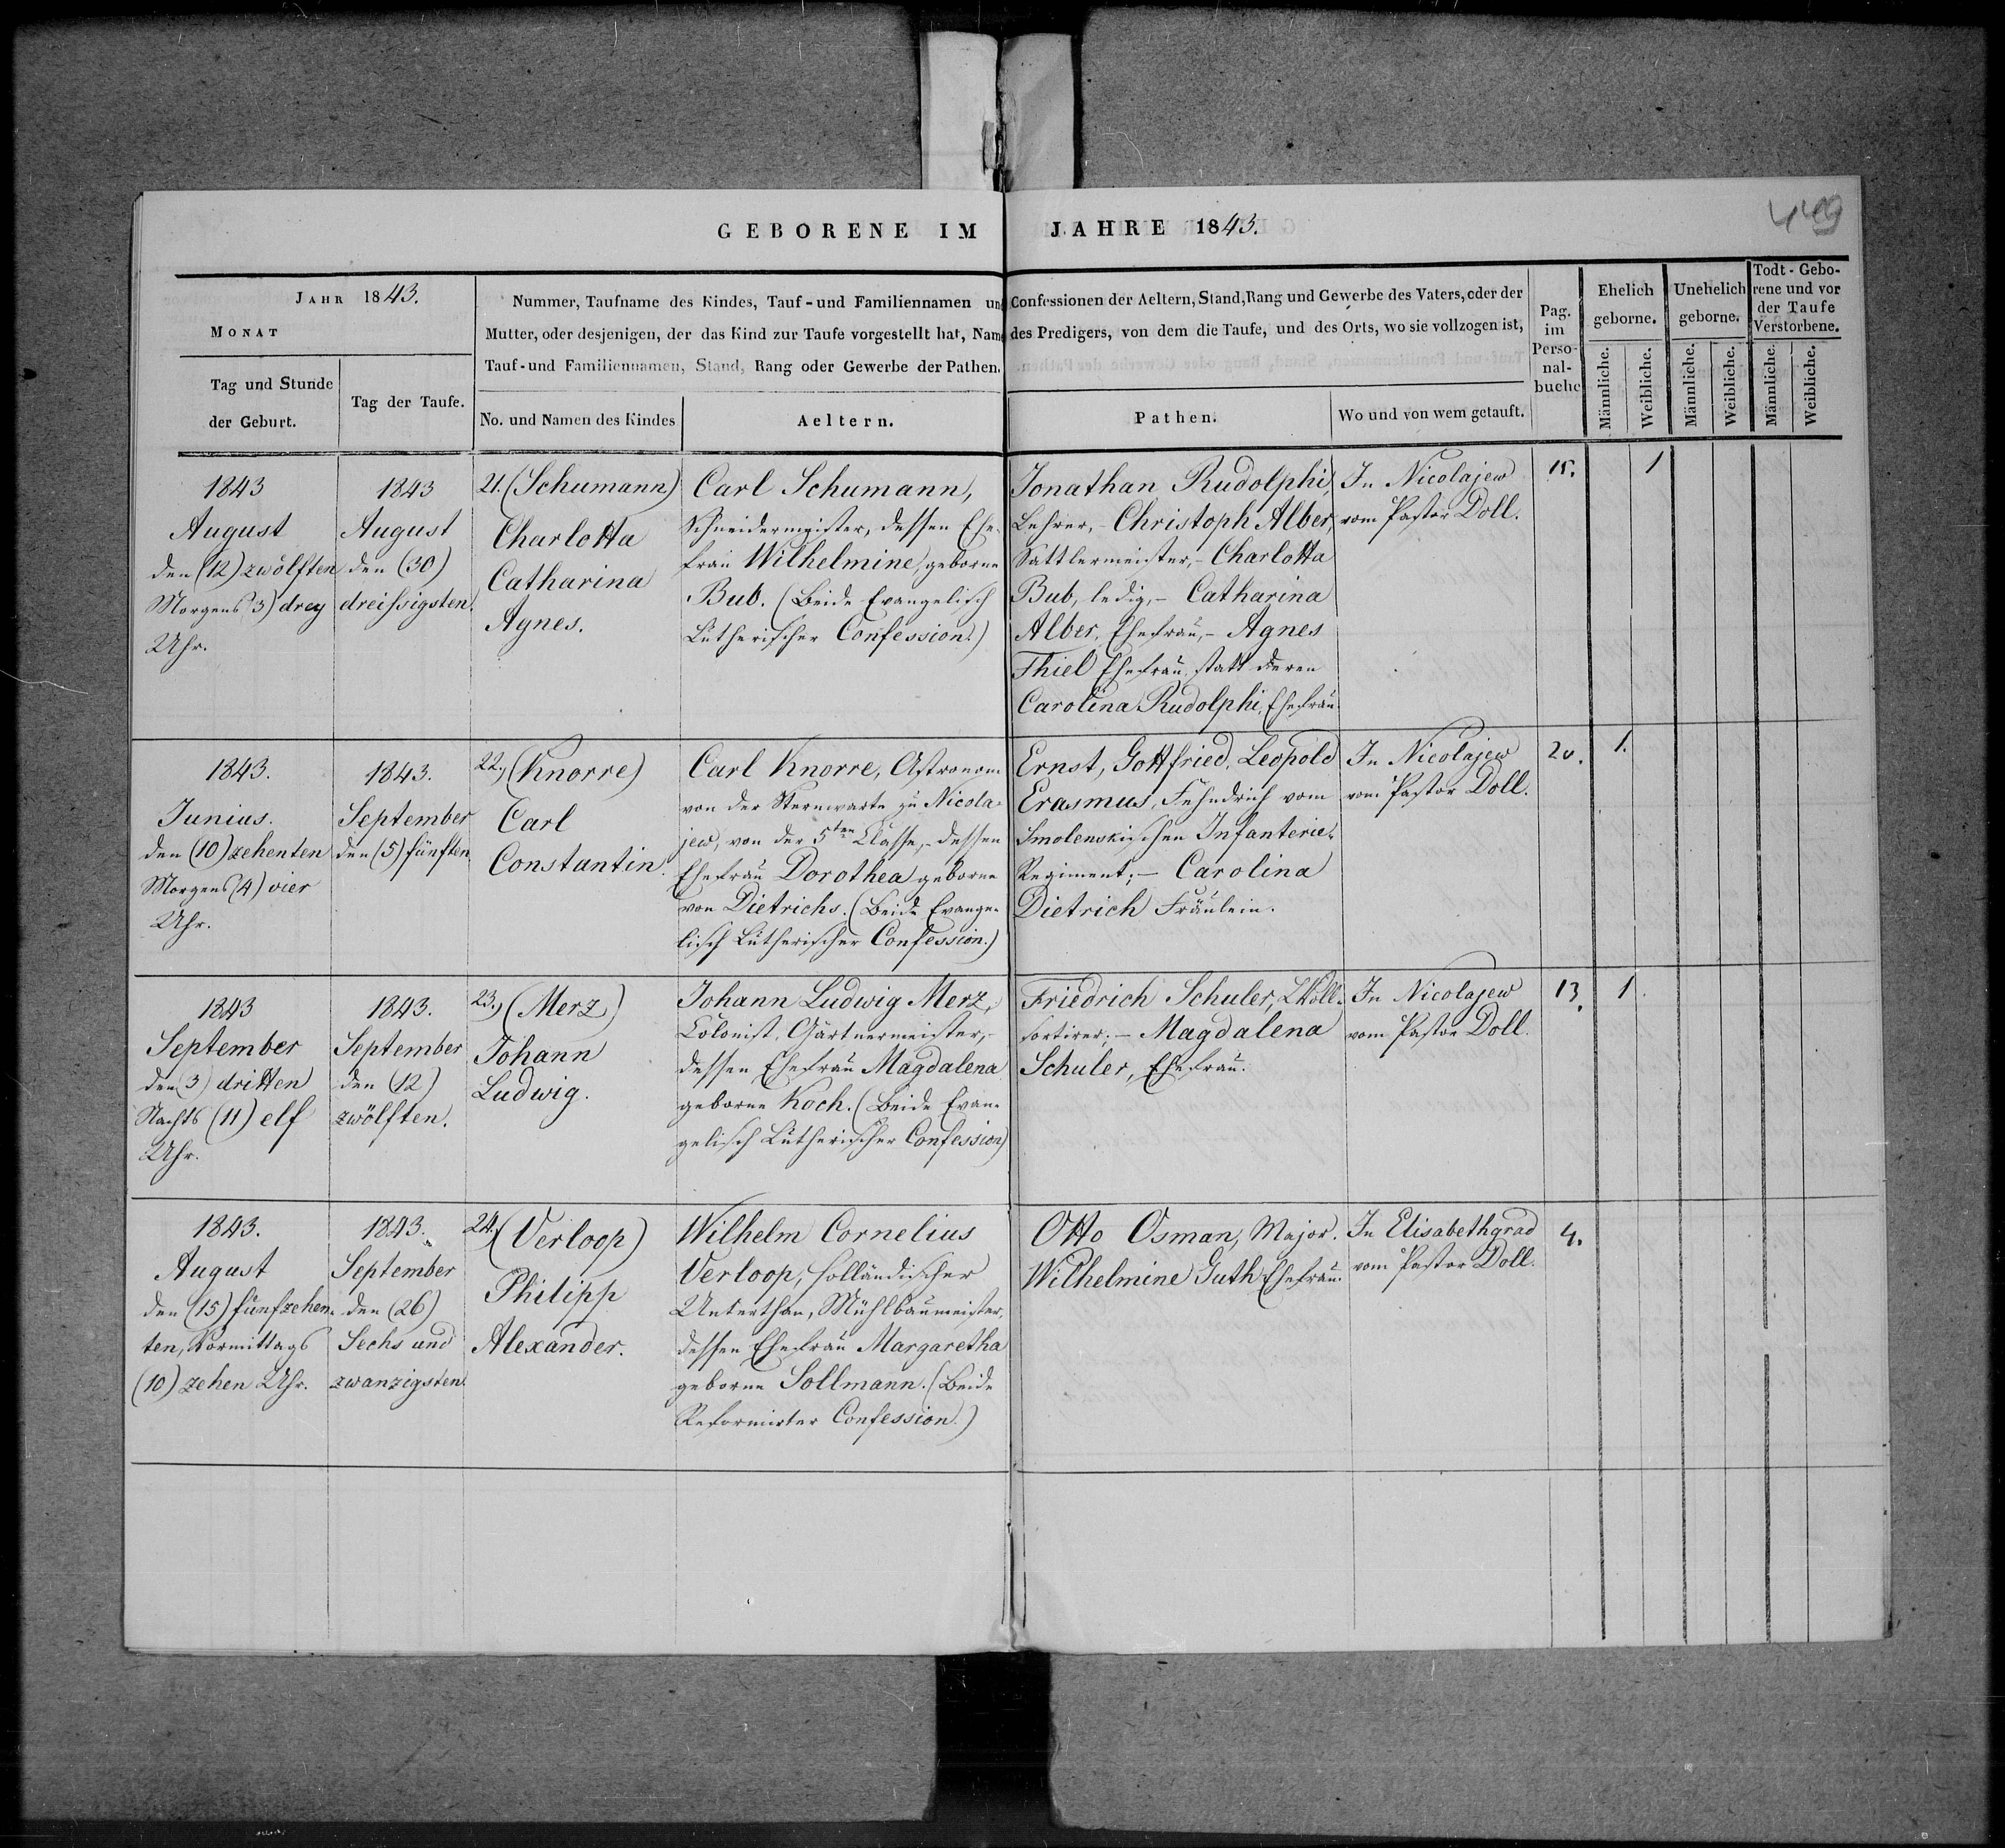 449
GEBORENE IM JAHRE 1843.
JAHR 1843.
MONAT
Tag und Stunde
der Geburt.
Tag der Taufe.
Nummer, Taufname des Kindes, Tauf- und Familiennamen und Confessionen der Aeltern, Stand, Rang und Gewerbe des Vaters, oder der
Mutter, oder desjenigen, der das Kind zur Taufe vorgestellt hat, Name des Predigers, von dem die Taufe, und des Orts, wo sie vollzogen ist,
Tauf- und Familiennamen, Stand, Rang oder Gewerbe der Pathen.
No. und Namen des Kindes
Aeltern.
Pathen.
Wo und von wem getauft.
Pag.
im
Perso-
nal-
buche
Ehelich
geborne.
Unehelich
geborne.
Todt-Gebo-
rene und vor
der Taufe
Verstorbene.
Männliche.
Weibliche.
Männliche.
Weibliche.
Männliche.
Weibliche.
1843
August
den (12) zwölften
Morgens 3) drey
Uhr.
1843
August
den (30)
dreissigsten.
21. (Schumann)
Charlotta
Catharina
Agnes.
Carl Schumann,
Schneidermeister, dessen Ehe-
frau Wilhelmine, geborne
Bub. (Beide Evangelisch
Lutherischer Confession.)
Jonathan Rudolphi,
Lehrer, - Christoph Alber,
Sattlermeister, - Charlotta
Bub, ledig, - Catharina
Alber, Ehefrau, - Agnes
Thiel Ehefrau, statt deren
Carolina Rudolphi, Ehefrau.
In Nicolajew
vom Pastor Doll.
15.
1
1843.
Junius.
den (10) zehenten
Morgens (4) vier
Uhr.
1843.
September
den (5) fünften.
22.) (Knorre)
Carl
Constantin.
Carl Knorre, Astronom
von der Sternwarte zu Nicola-
jew, von der 5ten Classe, - dessen
Ehefrau Dorothea geborne
von Dietrichs. (Beide Evange-
lisch Lutherischer Confession.)
Ernst, Gottfried, Leopold
Erasmus, Fehndrich vom
Smolenskischen Infanterie-
Regiment; - Carolina
Dietrich Fräulein.
In Nicolajew
vom Pastor Doll.
20.
1.
1843
September
den (3) dritten
Nachts (11) elf
Uhr.
1843.
September
den (12)
zwölften.
23.) (Merz)
Johann
Ludwig.
Johann Ludwig Merz,
Colonist, Gärtnermeister, -
dessen Ehefrau Magdalena
geborne Koch. (Beide Evan-
gelisch Lutherischer Confession)
Friedrich Schuler, Woll-
sortirer; - Magdalena
Schuler, Ehefrau.
In Nicolajew
vom Pastor Doll.
13.
1.
1843.
August
den (15) fünfzehen-
ten, Vormittags
(10) zehen Uhr.
1843.
September
den (26)
Sechs und
zwanzigsten.
24.) (Verloop)
Philipp
Alexander.
Wilhelm Cornelius
Verloop, holländischer
Unterthan, Mühlbaumeister,
dessen Ehefrau Margaretha
geborne Sollmann. (Beide
Reformirter Confession.)
Otto Osman, Major.
Wilhelmine Guth Ehefrau.
In Elisabethgrad
vom Pastor Doll.
4.